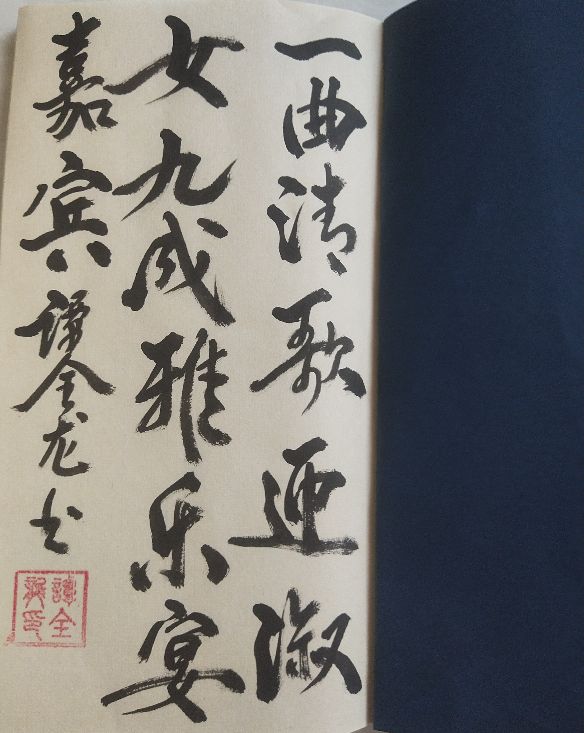 一曲清歌迎淑
女九成雅乐宴
嘉宾 谭全龙书
譚全龍印